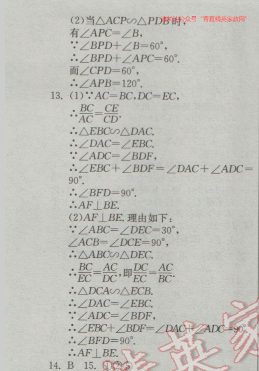 (2)当△ACP∽△PDB时,
有∠APC=∠B,
∵∠BPD+∠B=60°,
∴∠BPD+∠APC=60°.
而∠CPD=60°,
∴∠APB=120°.
13. (1)∵AC=BC,DC=EC,
∴BC/AC=CE/CD.
∴△EBC∽△DAC.
∴∠DAC=∠EBC.
∵∠ADC=∠BDF,
∴∠EBC+∠BDF=∠DAC+∠ADC=
90°.
∴∠BFD=90°.
∴AF⊥BE.
(2)AF⊥BE.理由如下:
∵∠ABC=∠DEC=30°,
∠ACB=∠DCE=90°,
∴△ABC∽△DEC.
∴BC/EC=AC/DC,即DC/EC=AC/BC.
∴△DCA∽△ECB.
∴∠DAC=∠EBC.
∵∠ADC=∠BDF,
∴∠EBC+∠BDF=∠DAC+∠ADC=90°
∴∠BFD=90°.
∴AF⊥BE.
14. B 15.
英家